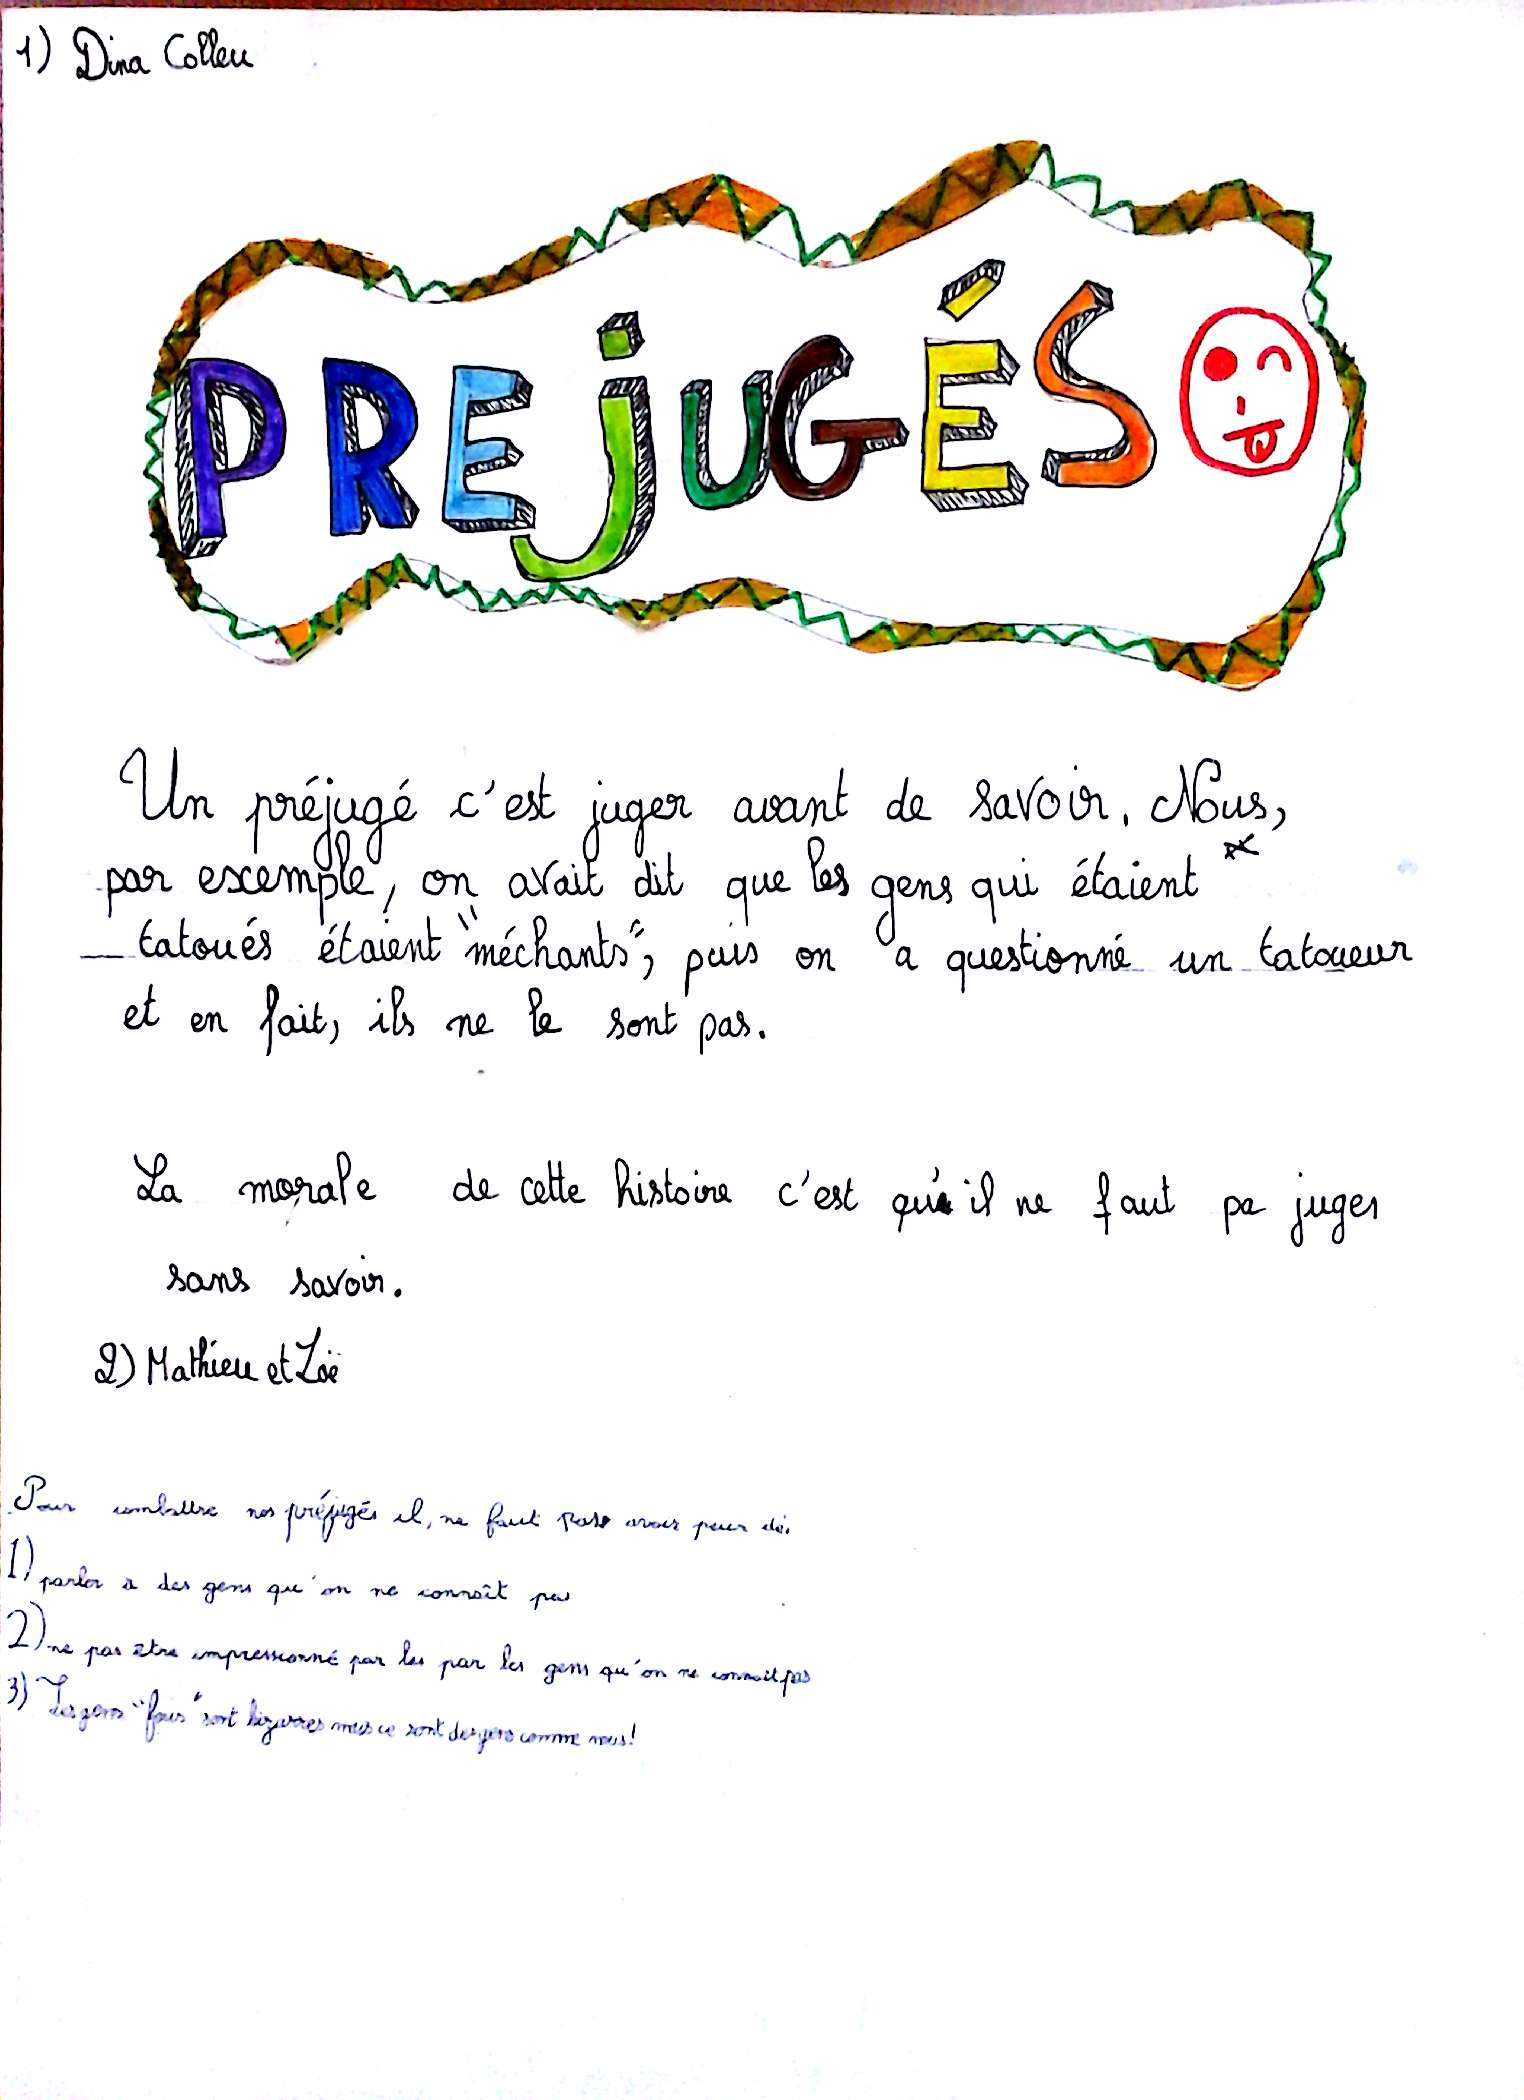 1) Dina Colleu
PREJUGÉS
Un préjugé c'est juger avant de savoir. Nous,
par excemple, on avait dit que les gens qui étaient
tatoués étaient "méchants", puis on a questionné un tatoueur
et en fait, ils ne le sont pas.
La morale de cette histoire c'est qu'il ne faut pa juger
sans savoir.
2) Mathieu et Zoë
Pour combattre nos préjugés il, ne faut pas avoir peur de.
1) parler a des gens qu'on ne connaît pas
2) ne pas être impressionné par les par les gens qu'on ne connait pas
3) Les gens "fous" sont bizarres mais ce sont des gens comme nous!